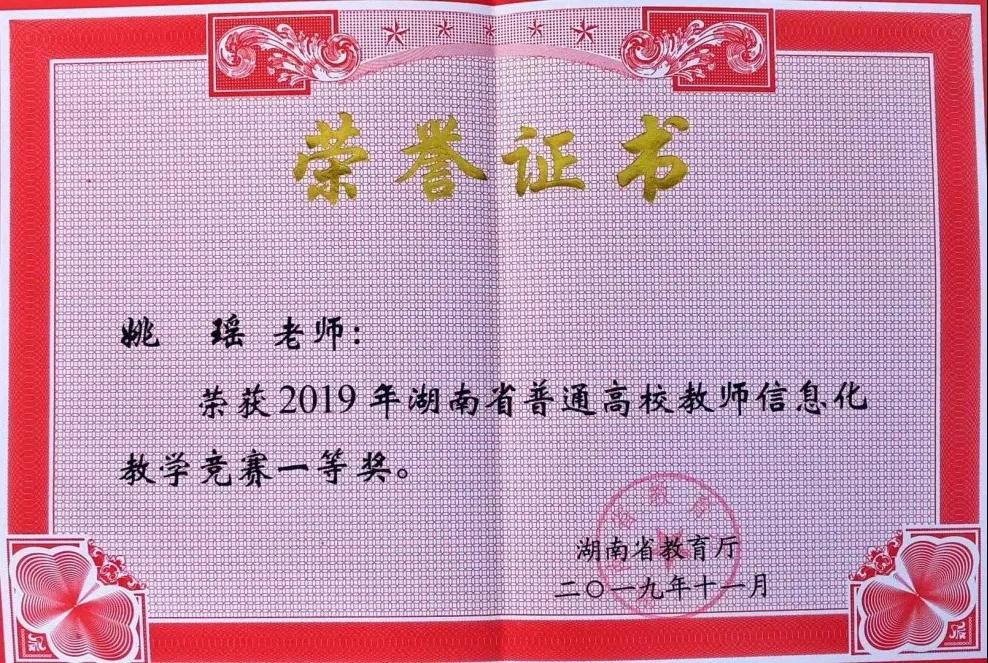 荣誉证书
姚 瑶 老师：
荣获2019年湖南省普通高校教师信息化
教学竞赛一等奖。
湖南省教育厅
二〇一九年十一月